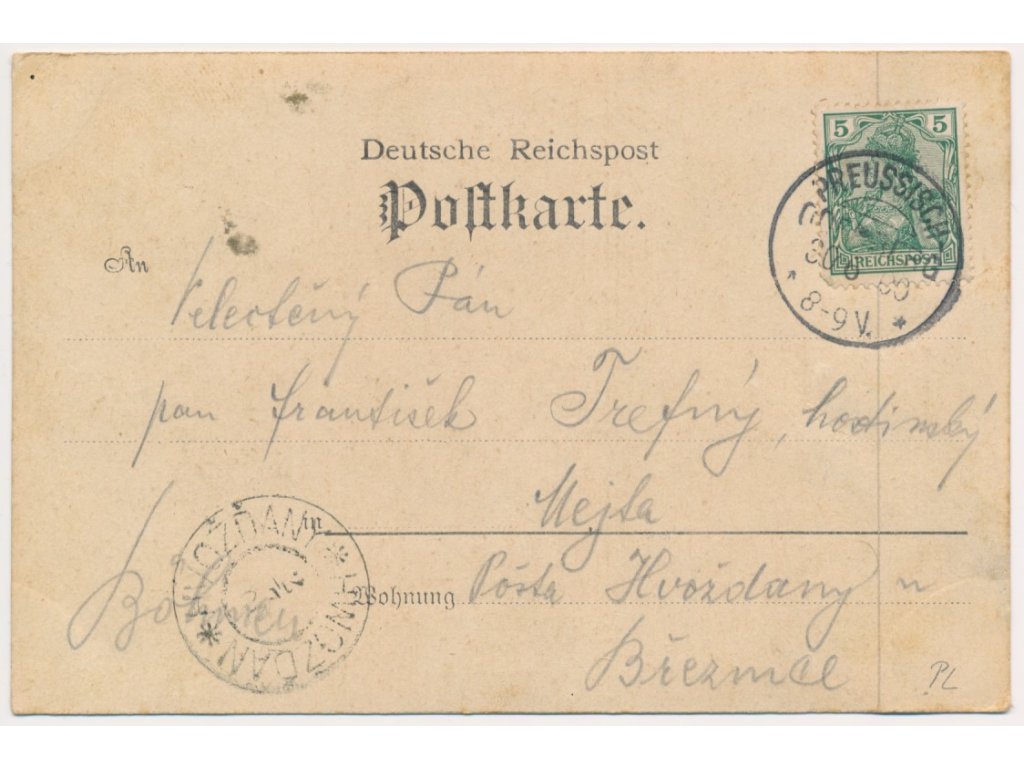 Deutsche Reichspost
Postkarte.
5 5
REICHSPOST
PREUSSISCH
8-9V.
An
Velectěný Pán
pan František Trefný, hodinský
in
Mejta
Wohnung
Pošta Hvožďany u
Březnice
Böhmen
HVOŽĎANY * HWOZDAN *
PL